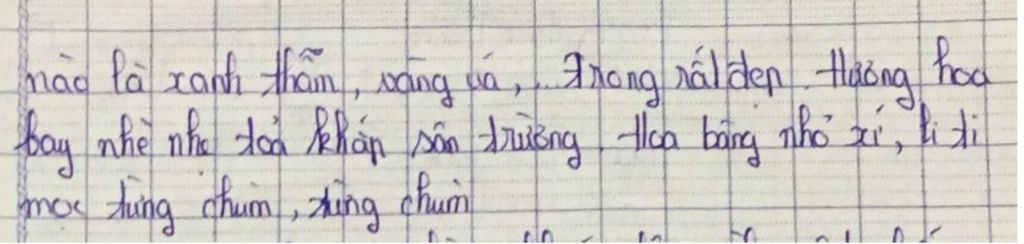 nào là xanh thẫm, vàng úa,... Trong rất đẹp. Hương hoa
bay nhè nhẹ toả khắp sân trường. Hoa bàng nhỏ xí, li ti
mọc từng chùm, từng chùm